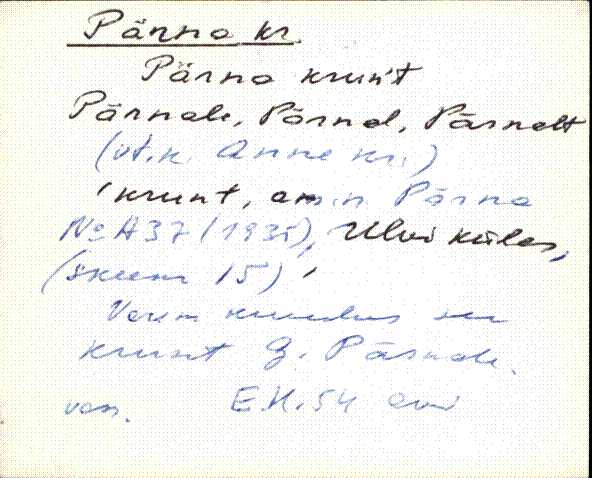 Pärna kr.
Pärna krunt
Pärnale, Pärnal, Pärnalt
(vt. k. Anne kr.)
'krunt, am. n. Pärna
No A37 (1935), Ulvi külas,
(skeem 15)'
Varem kuulus see
krunt J. Pärnale.
van. E.K. 54